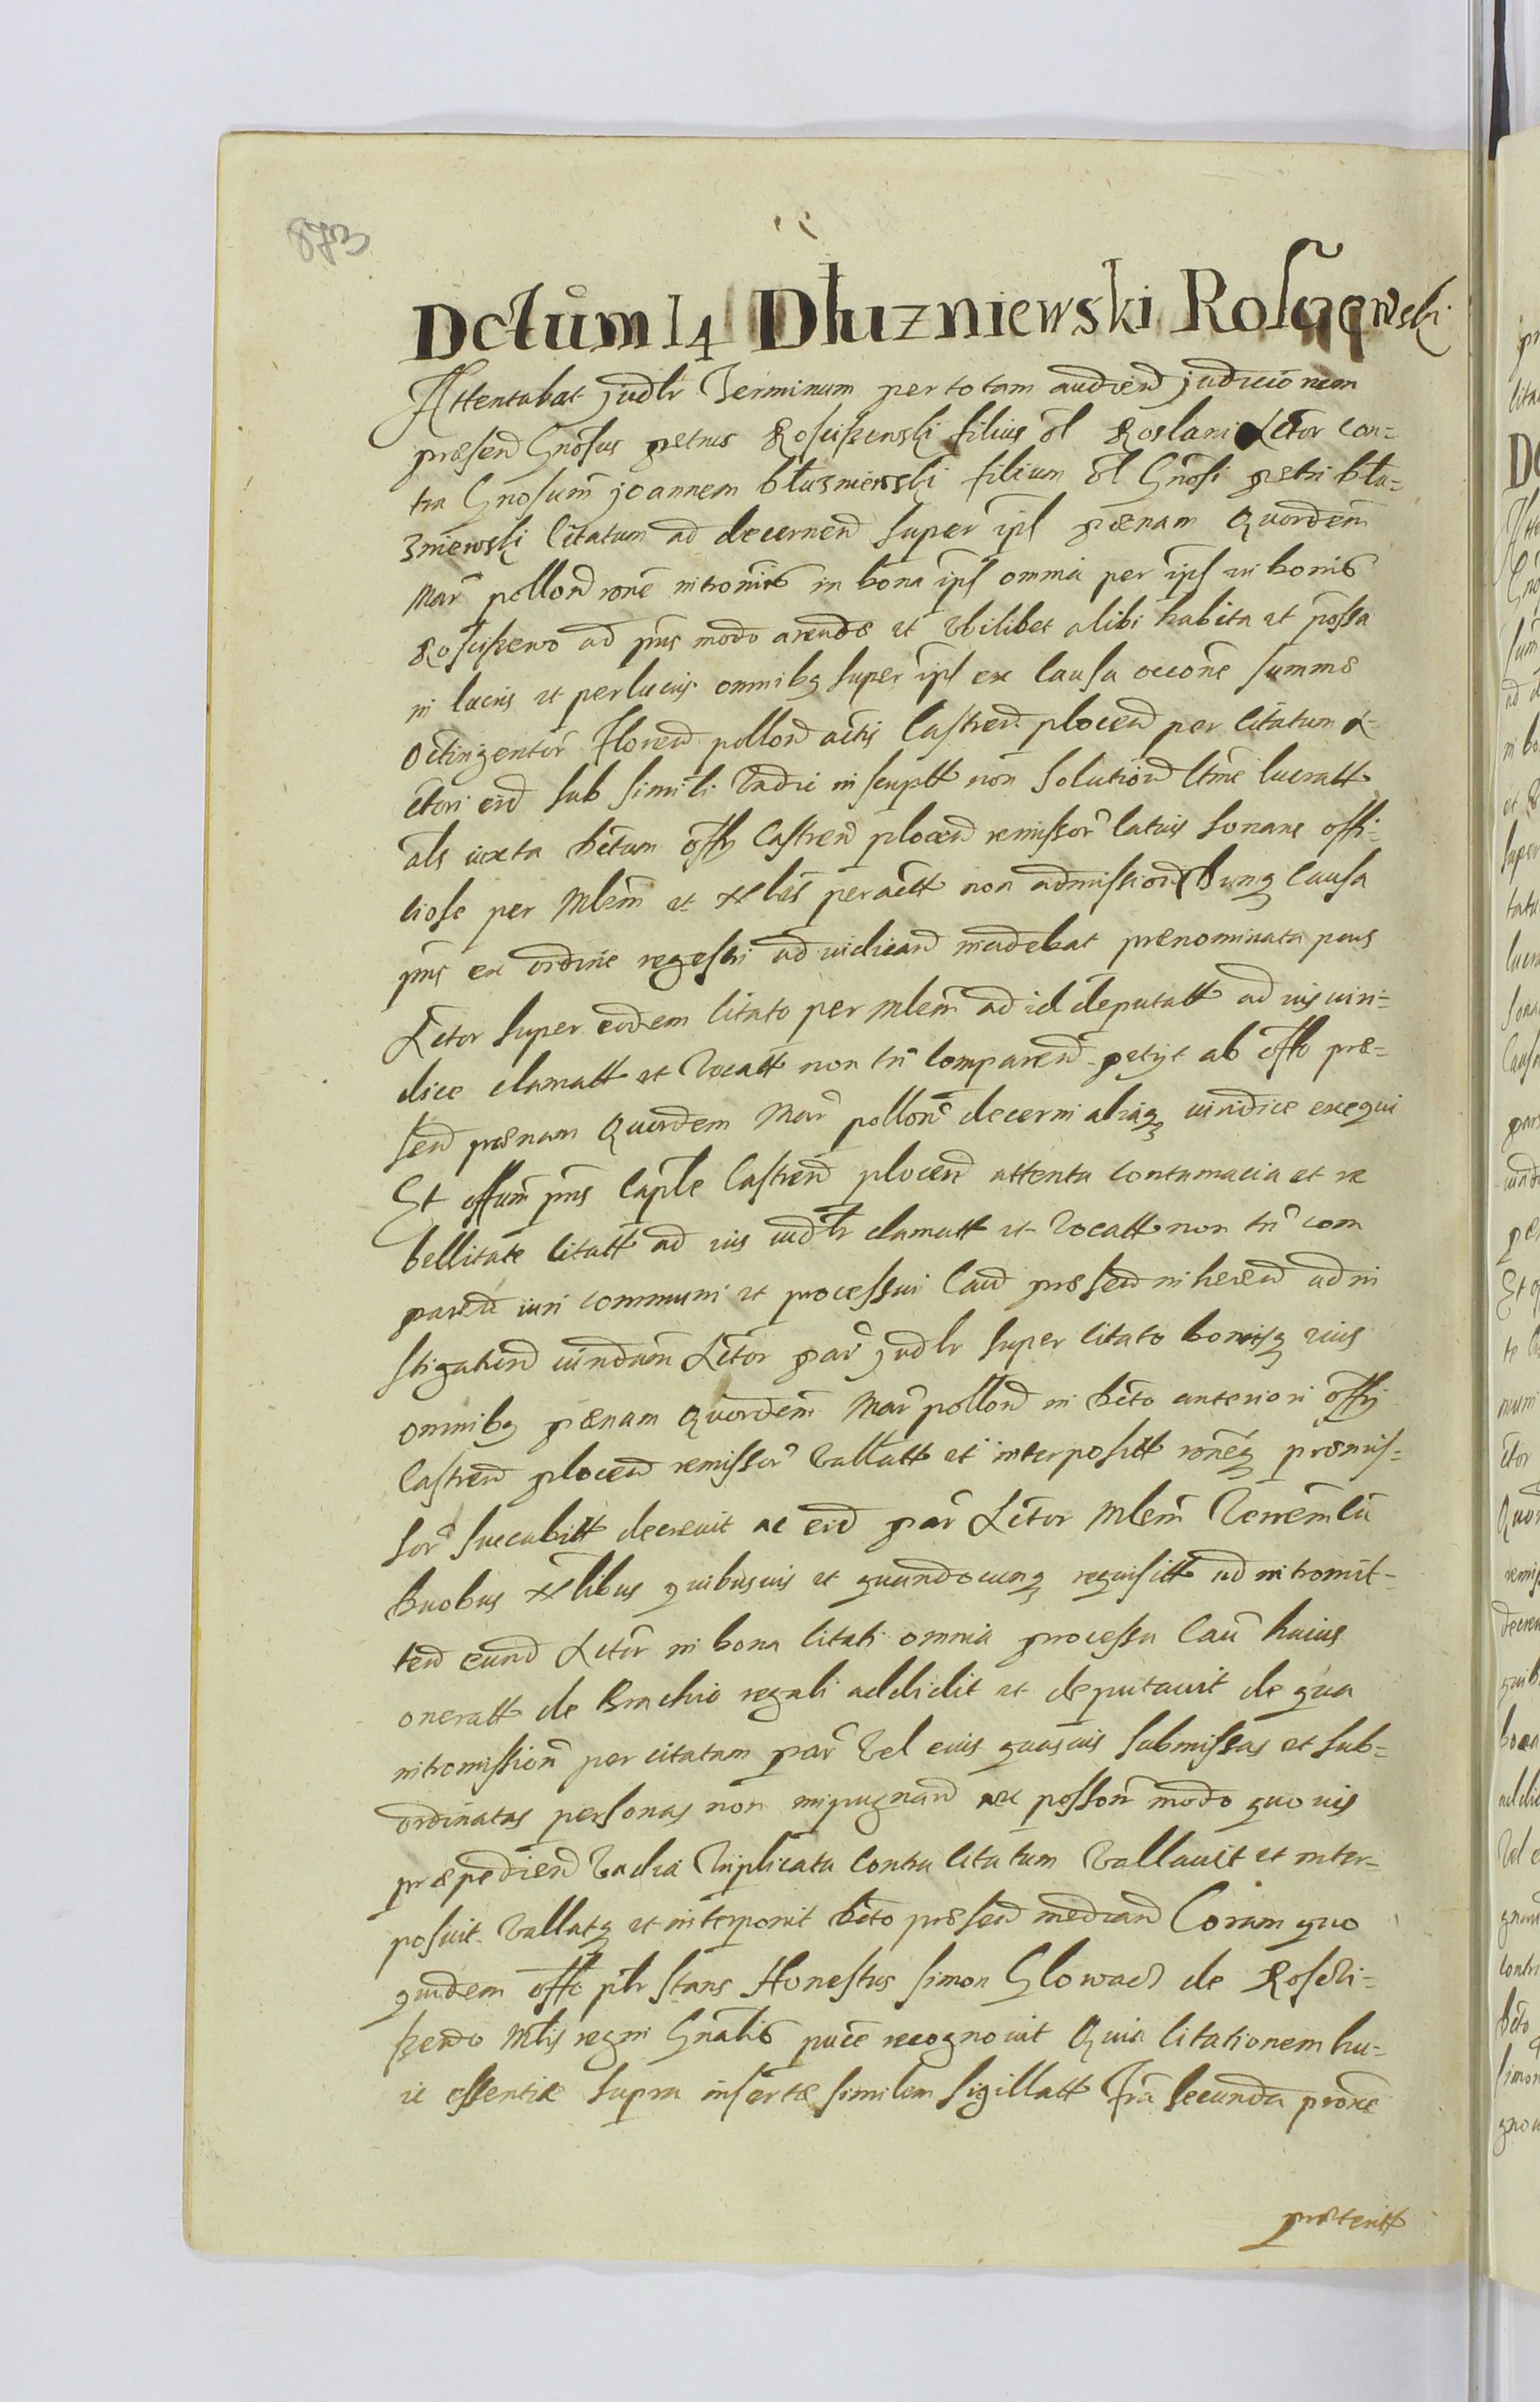 873
Dctum 14 Dłuzniewski Rosciszewski
Attentabat judlr Terminum per totam audien judicionem
præsen Gnosus petrus Rosciszewski filius ol Roslani Actor con=
tra Gnosum joannem dłuzniewski filium ol Gnosi petri dłu=
zniewski Citatum ad decernen super ipl pœnam Quordem
Mar pollon rone intromis in bona ipl omnia per ipl in bonis
Rosciszewo ad pns modo arendæ et Vbilibet alibi habita et possa
in lucris et perlucris omnibq super ipl ex causa occone summæ
octingentor Floren pollon actis Castren plocen per citatum A=
ctori eid sub simili Vadio inscriptt non solution ltme lucratt
als iuxta dctum offy Castren plocen remissor latius sonans offi=
ciose per Mlem et Nbles peractt non admission Cunq causa
pns ex ordine regestri ad iudican incidebat prænominata pars
Actor super eodem citato per Mlem ad id deputatt ad ius iuri=
dice clamatt et Vocatt non tn comparen petyt ab offo præ=
sen pœnam Quordem Mar pollon decerni aliaq iuridice exequi
Et offum pns Caple Castren plocen attenta contumacia et re
bellitate citatt ad ius iudlr clamatt et Vocatt non tn com
paren iuri communi et processui Caus præsen inheren ad in
stigation eiusdem Actor par judlr super citato bonisq eius
omnibq pœnam Quordem Mar pollon in dcto anteriori offy
Castren plocen remissor Vallatt et interpositt roneq præmis=
sor succubitt decrevit ac eid par Actor Mlem Terrem cu
duobus Nblibus quibusuis et quandocunq requisitt ad intromit=
ten eund Actor in bona citati omnia processu Cau huius
oneratt de Brachio regali addidit et deputauit de qua
intromission per citatum par Vel eius quasuis submissas et sub=
ordinatas personas non impugnan nec posson modo quouis
præpedien Vadia triplicata contra citatum Vallauit et inter=
posuit Vallatq et interponit dcto præsen median Coram quo
quidem offo plr stans Honestus simon Glowacz de Rosci=
szewo Mlis regni Gnalis puce recognouit Quia citationem hu=
ic essentiæ supra insertæ similem sigillatt Fra secunda proxe
præteritt